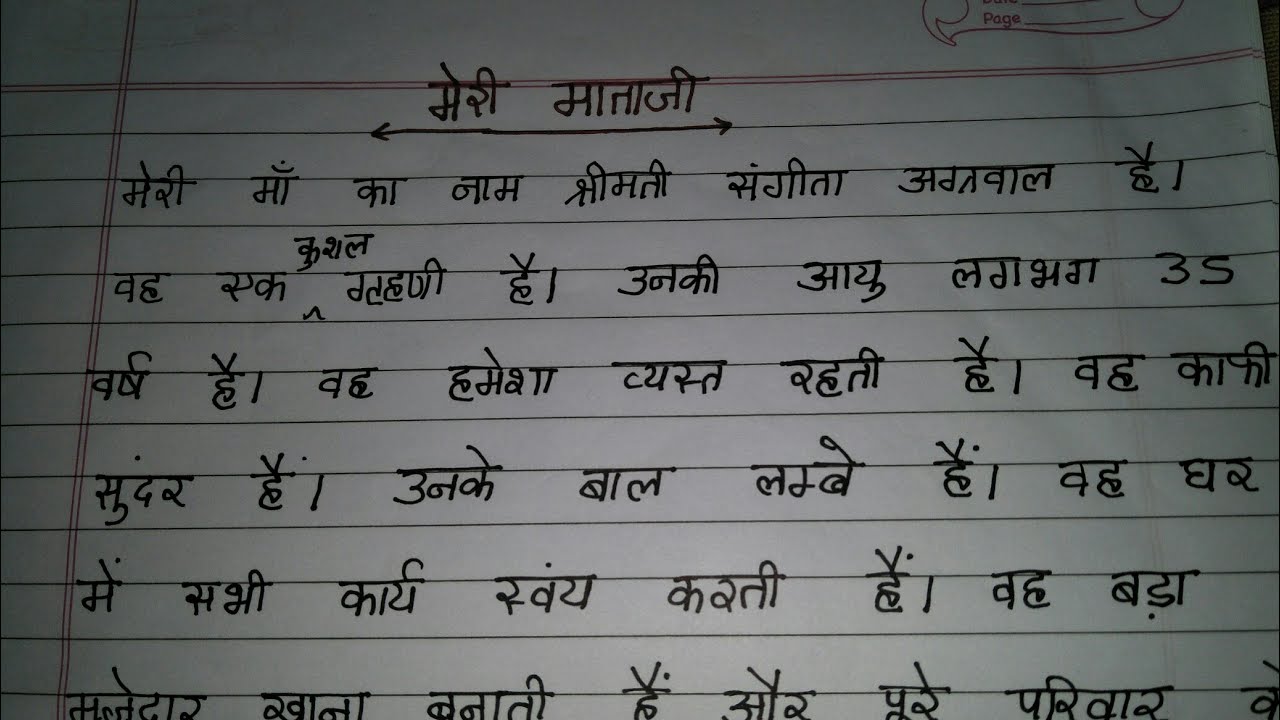 Page
मेरी माताजी
मेरी माँ का नाम श्रीमती संगीता अग्रवाल है।
वह एक कुशल गृहणी है। उनकी आयु लगभग 35
वर्ष है। वह हमेशा व्यस्त रहती है। वह काफी
सुंदर हैं। उनके बाल लम्बे हैं। वह घर
में सभी कार्य स्वंय करती हैं। वह बड़ा
मजेदार खाना बनाती हैं और पूरे परिवार